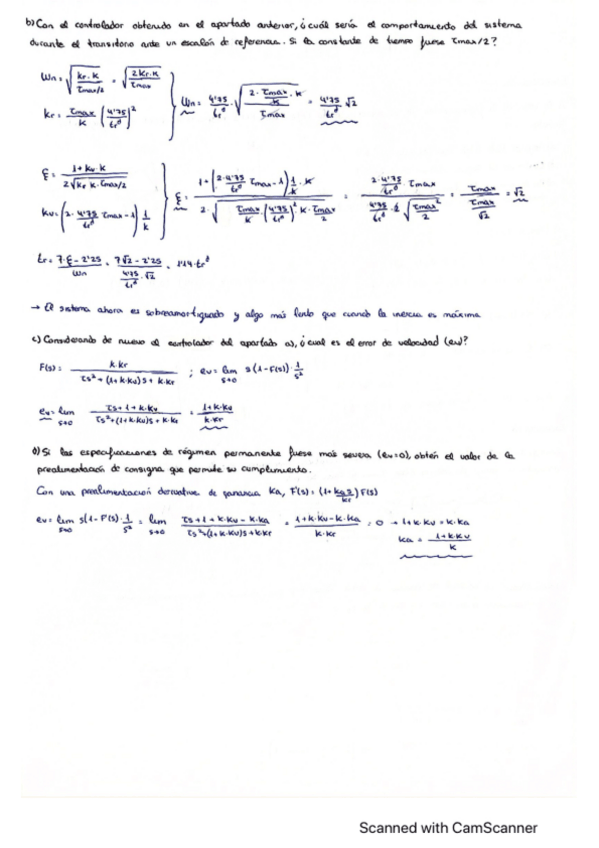 b) Con el controlador obtenido en el apartado anterior, ¿cuál sería el comportamiento del sistema
durante el transitorio ante un escalón de referencia. Si la constante de tiempo fuese τmax/2?
ωn = √(kr·k / τmax/2) = √(2kr·k / τmax)
kr = τmax/k (4'75/tr^d)^2
ωn = 4'75/tr^d · √(2·τmax/k·k / τmax) = 4'75/tr^d √2
ξ = 1+kv·k / 2√(kr·k·τmax/2)
kv = (2·4'75/tr^d τmax-1) 1/k
ξ = 1+(2·4'75/tr^d τmax-1) 1/k·k / 2·√(τmax/k·(4'75/tr^d)^2 k·τmax/2) = 2·4'75/tr^d τmax / 4'75/tr^d·2 √(τmax^2/2) = τmax / τmax/√2 = √2
tr = 7·ξ-2'25 / ωn = 7√2-2'25 / 4'75/tr^d·√2 = 1'14·tr^d
→ El sistema ahora es sobreamortiguado y algo más lento que cuando la inercia es máxima
c) Considerando de nuevo el controlador del apartado a), ¿cual es el error de velocidad (ev)?
F(s) = k·kr / τs²+(1+k·kv)s+k·kr ; ev = lim s→0 s(1-F(s))·1/s²
ev = lim s→0 τs+1+k·kv / τs²+(1+k·kv)s+k·kr = 1+k·kv / k·kr
d) Si las especificaciones de régimen permanente fuese más severa (ev=0), obtén el valor de la
prealimentación de consigna que permite su cumplimiento.
Con una prealimentación derivativa de ganancia ka, F'(s) = (1+ka s/kr) F(s)
ev = lim s→0 s(1-F'(s))·1/s² = lim s→0 τs+1+k·kv-k·ka / τs²+(1+k·kv)s+k·kr = 1+k·kv-k·ka / k·kr = 0 → 1+k·kv = k·ka
ka = 1+k·kv / k
Scanned with CamScanner